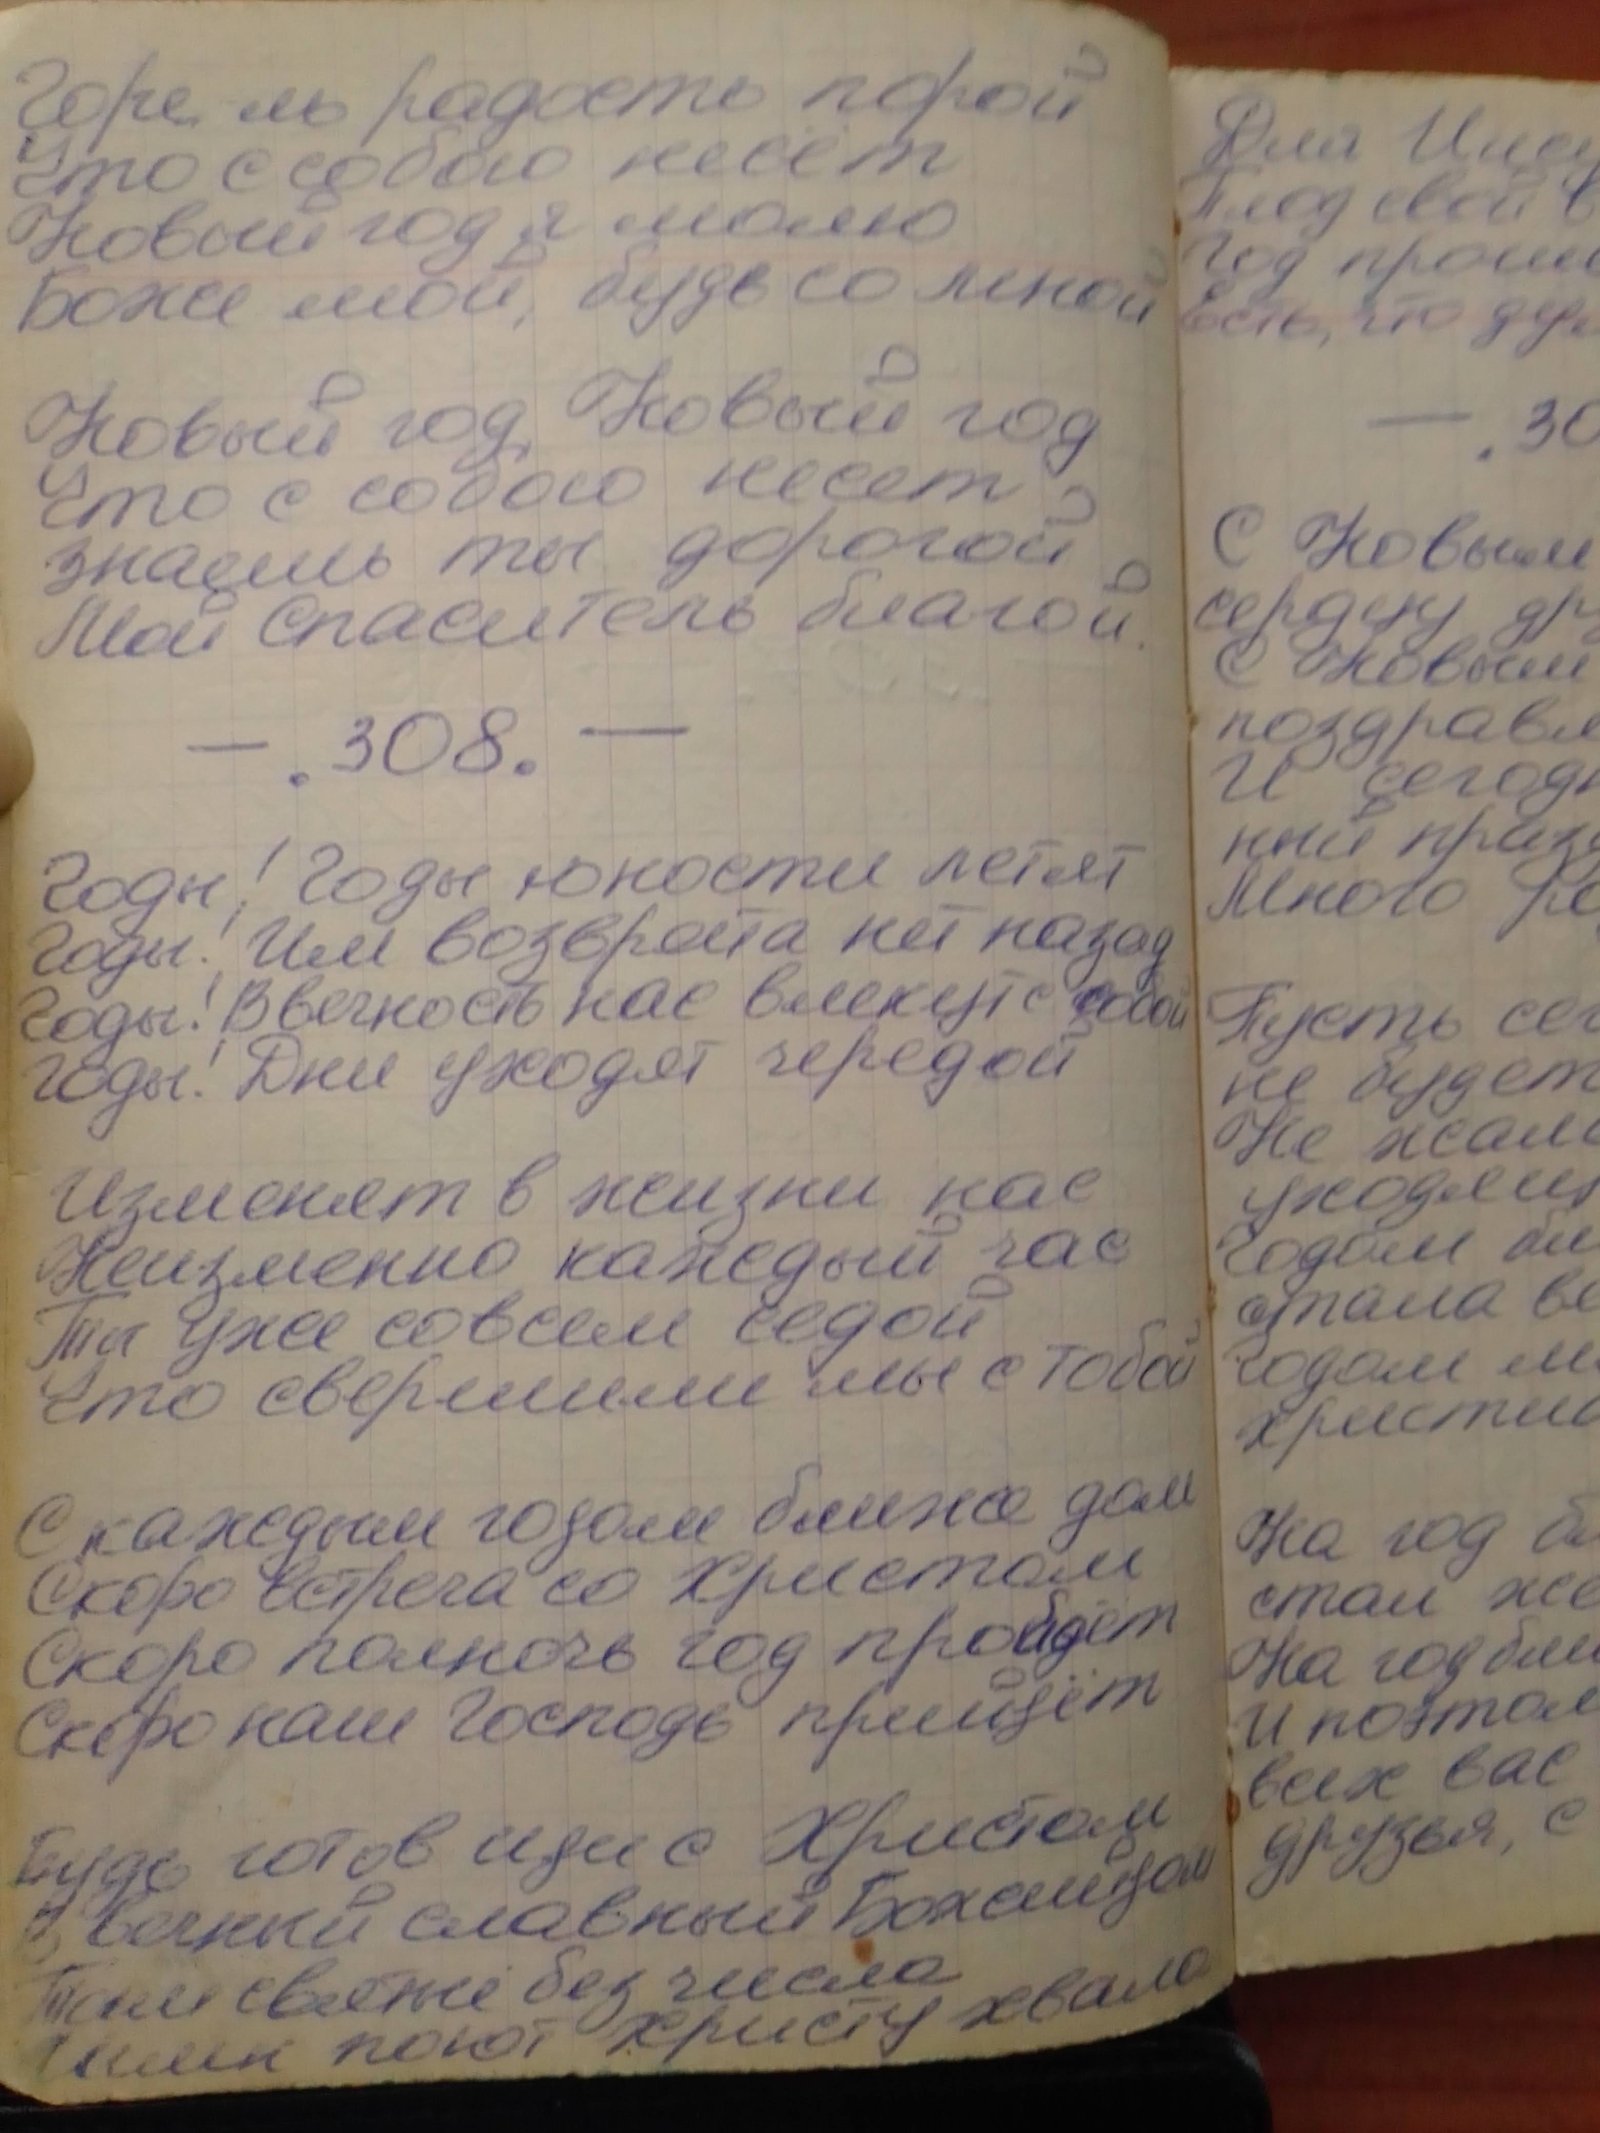 Горе ль радость порой
Что с собою несёт
Новый год я молю
Боже мой, будь со мной
Новый год, Новый год
Что с собою несет
знаешь ты дорогой
Мой Спаситель благой.
— .308. —
Годы! Годы юности летят
Годы! Им возврата нет назад
Годы! В вечность нас влекут с собой
Годы! Дни уходят чередой
Изменят в жизни нас
Неизменно каждый час
Ты уже совсем седой
Что свершили мы с тобой
С каждым годом ближе дом
Скоро встреча со Христом
Скоро полночь год пройдёт
Скоро наш Господь прийдёт
Будь готов иди с Христом
В вечный славный Божий дом
Там святые без числа
Гимн поют Христу хвала
Для
Плод свой в
Год
Есть, что
— .30
С Новым
сердцу
С Новым
И
ный
Много
Пусть
не будет
Не
годом
стала
годом
На год
стал
На год
И
всех вас
друзья, с